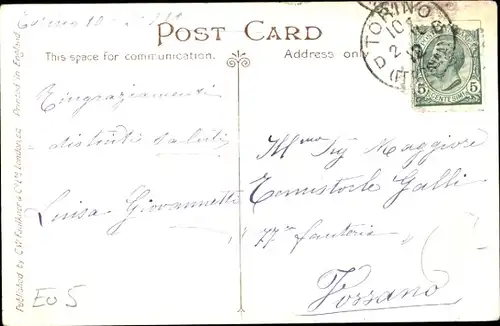 POST CARD
This space for communication.
Address only
TORINO
5 CENTESIMI 5
Ringraziamenti
distinti saluti
Luisa Giovannetti
Sig Maggiore
Temistocle Galli
77ª fanteria
Fossano
Published by C. W. Faulkner & Co. Ltd. London, E.C. Printed in England
EU 5